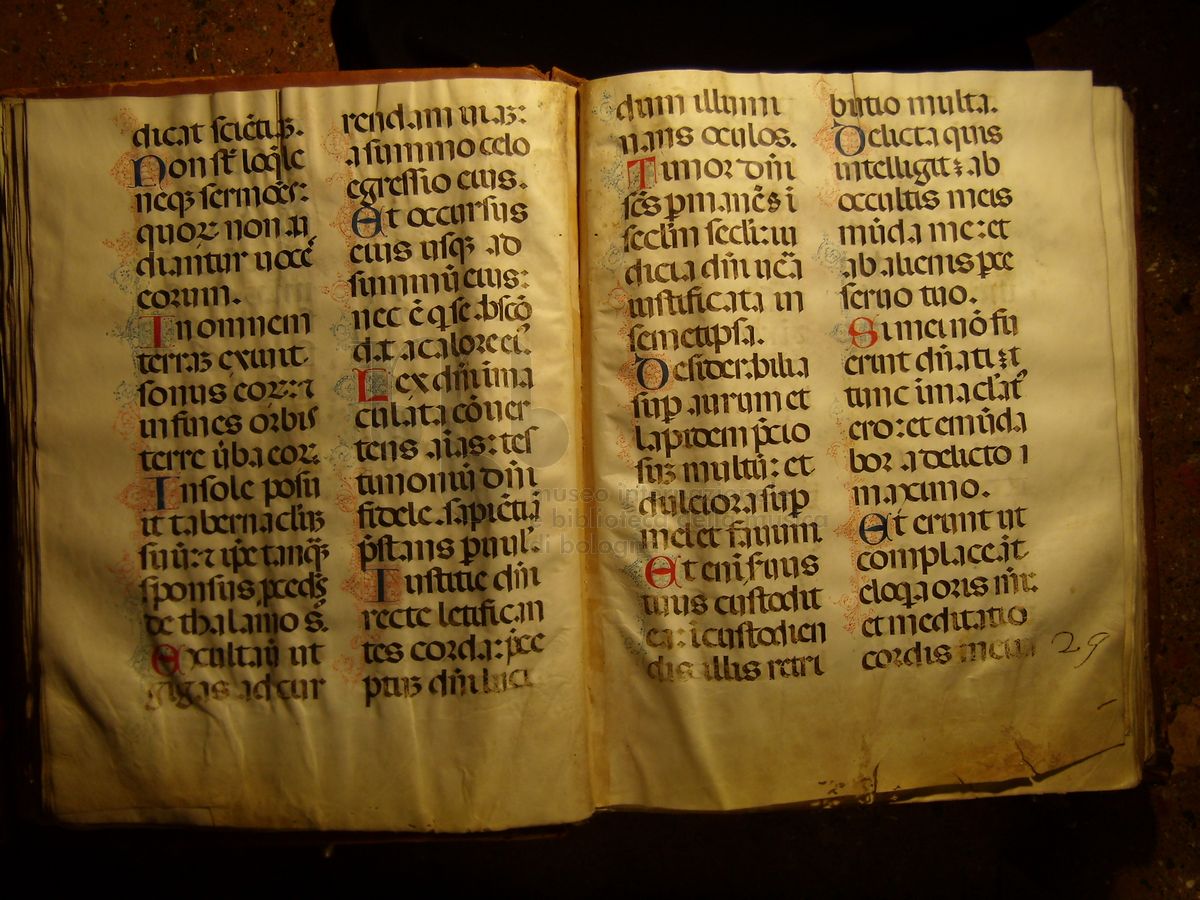 dicat sciētiā.
Non st̄ loq̄le
neqꝫ sermōēs:
quorꝝ non au
diantur uocē
eorum.
In omnem
terrā exiuit
sonus eorꝝ: ⁊
in fines orbis
terre ūba eorꝝ.
In sole posu
it tabernaclꝫ
suū: ⁊ ip̄e tanqꝫ
sponsus p̄cedēs
de thalamo s̄.
Exultauit ut
gigas ad cur
rendam uiaꝫ:
a summo celo
egressio eius.
Et occursus
eius usqꝫ ad
summū eius:
nec ē q se abscō
dat a calore ei᷒.
Lex dn̄i ima
culata cōuer
tens aīas: tes
timoniū dn̄i
fidele sapiētiā
p̄stans paruul᷒.
Iustitie dn̄i
recte letifican
tes corda: p̄ce
ptuꝫ dn̄i luci
dum illumi
nans oculos.
Timor dn̄i
scs̄ pmanēs ī
sclm̄ scli: iu
dicia dn̄i uēa
iustificata in
semetipsa.
Desiderabilia
sup aurum et
lapidem p̄cio
suꝫ multū: et
dulciora sup
mel et fauum.
Et enī seruus
tuus custodit
ea: ī custodien
dis illis retri
butio multa.
Delicta quis
intelligit: ab
occultis meis
mūda me: et
ab alienis parce
seruo tuo.
Si mei nō fu
erint dn̄ati: t
tunc imaclat᷒
ero: et emūda
bor a delicto
maximo.
Et erunt ut
complaceāt
eloqa oris mei:
et meditatio
cordis mei
29
museo
e biblioteca della musica
di bologna